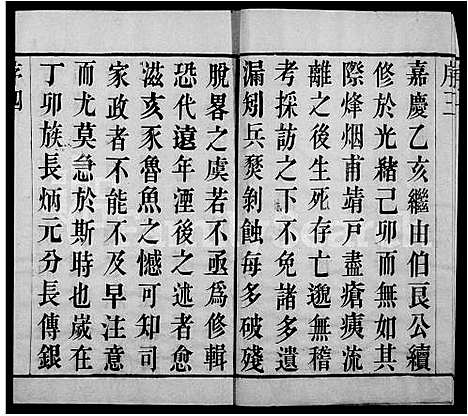 序三
嘉慶乙亥繼由伯良公續
修於光緒己卯而無如其
際烽烟甫靖戶盡瘡痍流
離之後生死存亡邈無稽
考採訪之下不免諸多遺
漏矧兵燹剝蝕每多破殘
脫畧之虞若不亟為修輯
恐代遠年湮後之述者愈
滋亥豕魯魚之憾可知司
家政者不能不及早注意
而尤莫急於斯時也歲在
丁卯族長炳元分長傳銀
序四